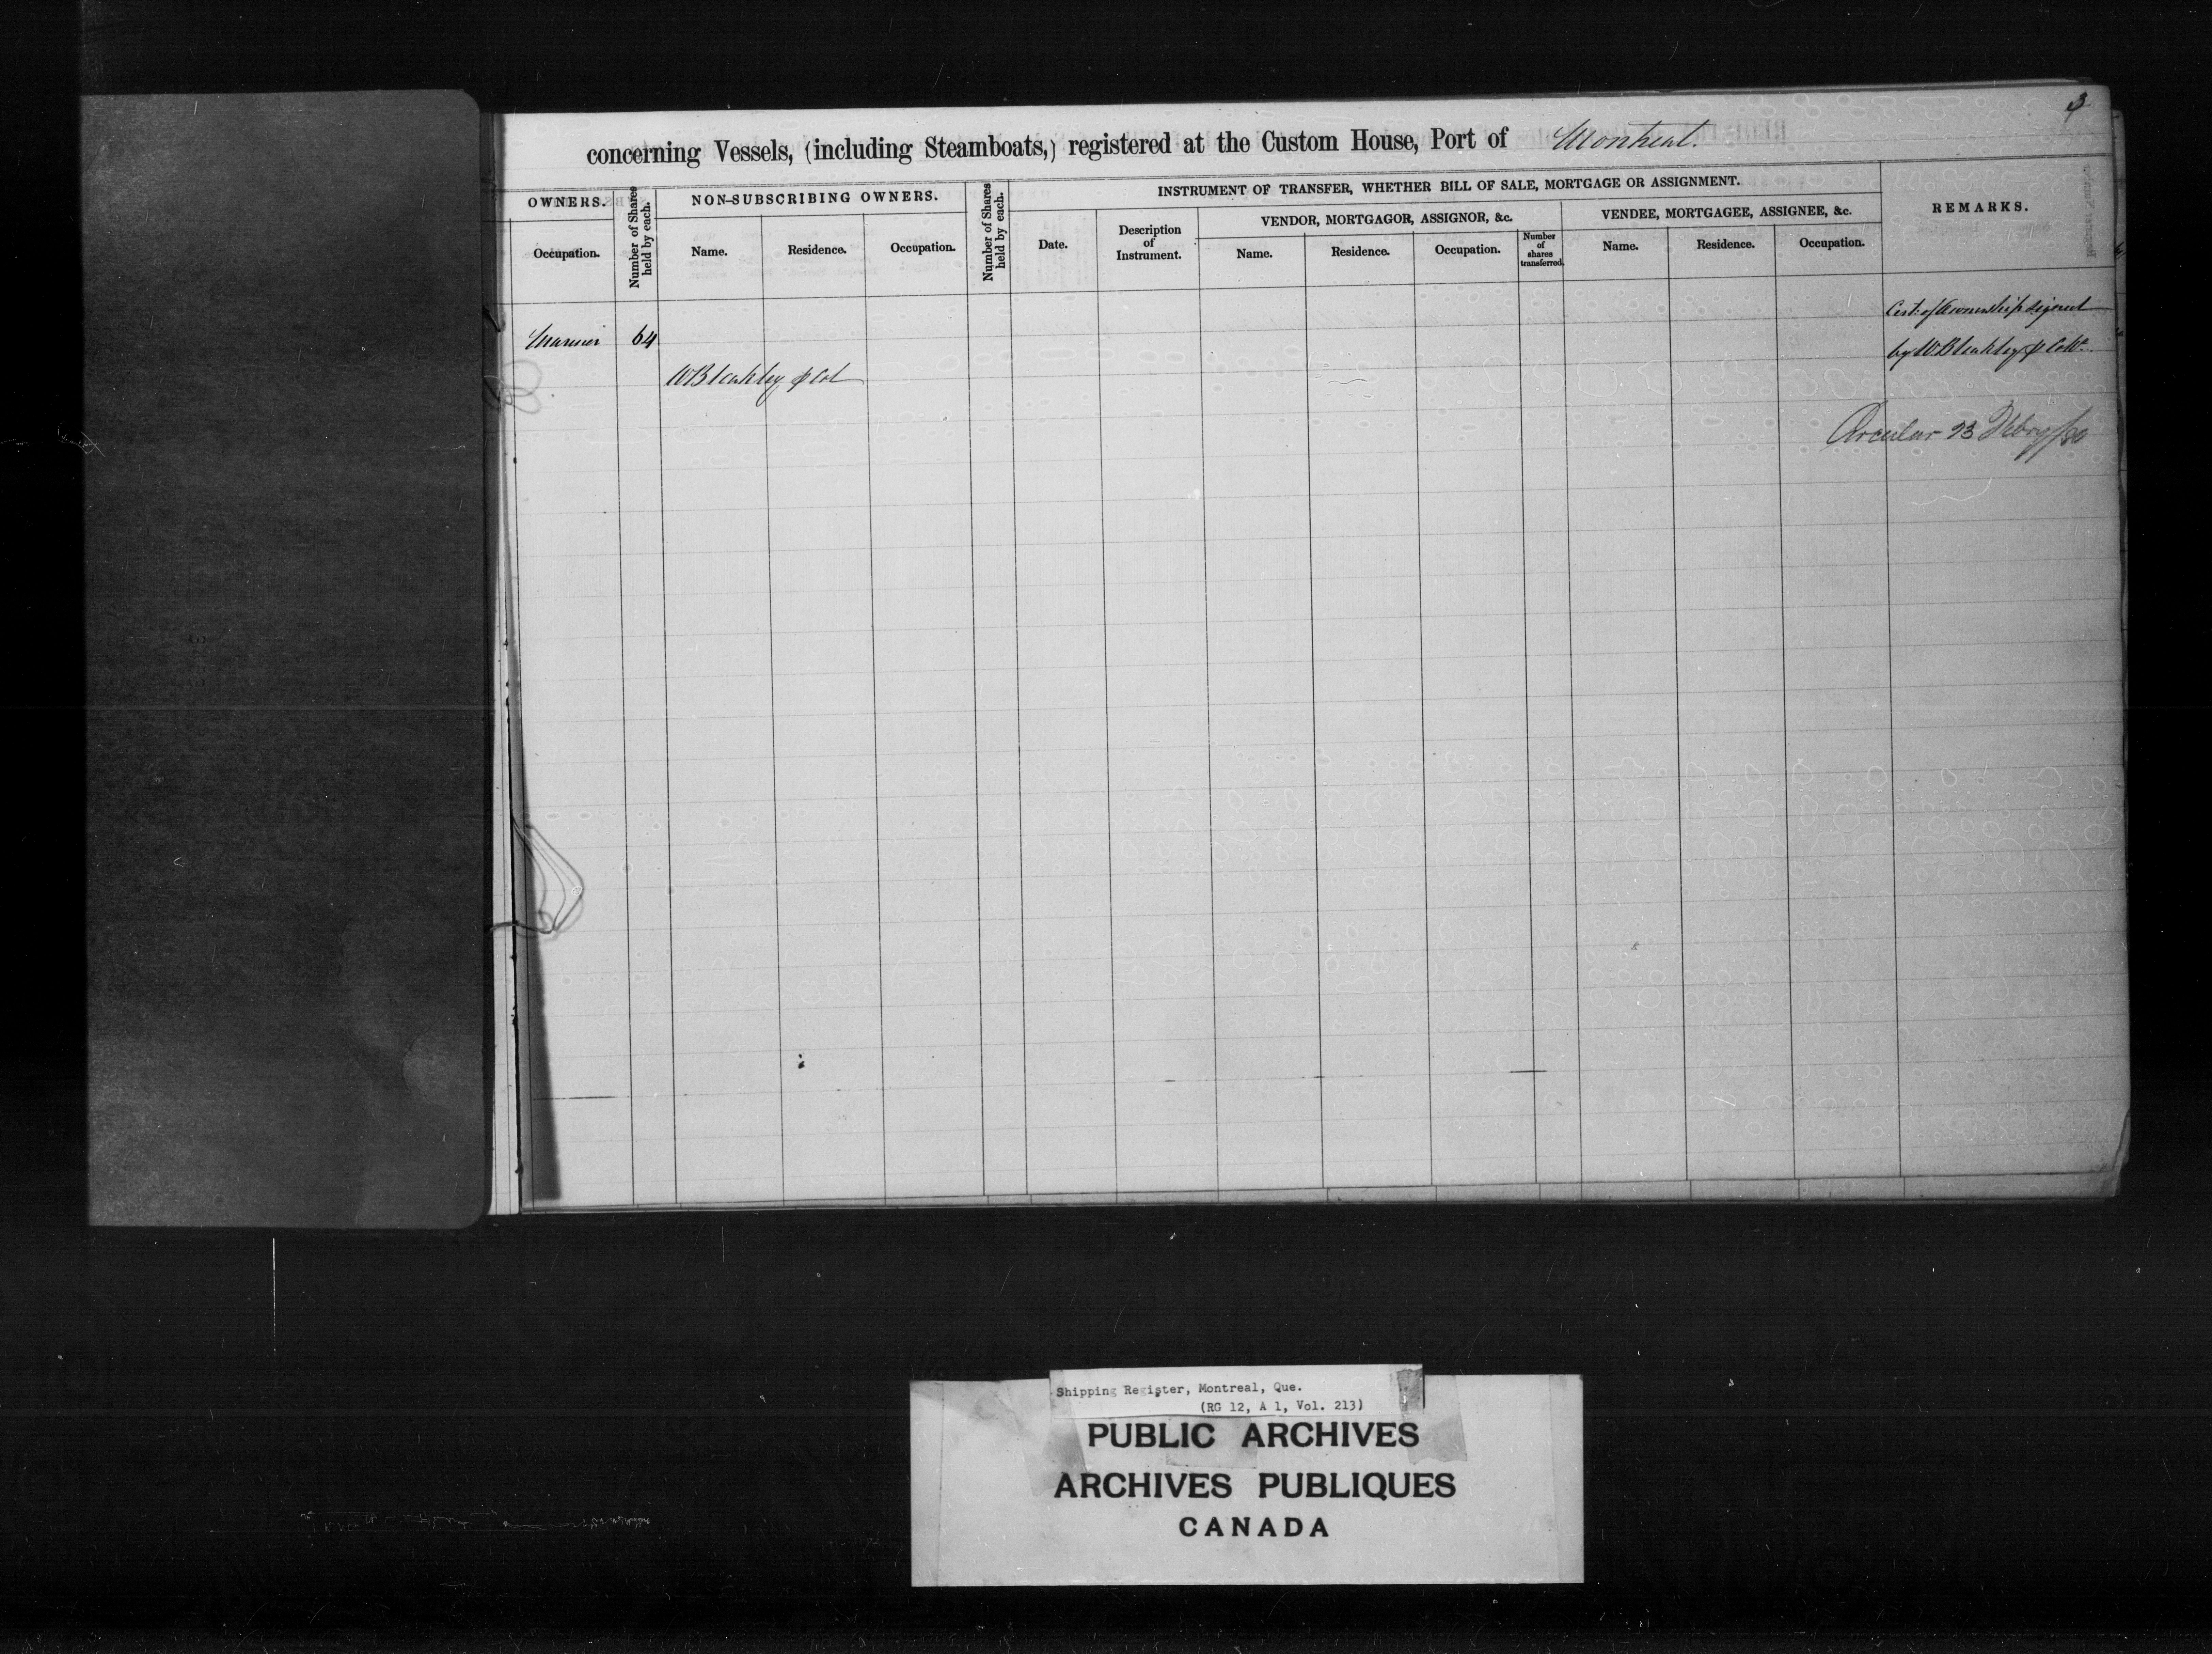 3
concerning Vessels, (including Steamboats,) registered at the Custom House, Port of Montreal.
OWNERS.
Number of Shares held by each.
NON-SUBSCRIBING OWNERS.
Number of Shares held by each.
INSTRUMENT OF TRANSFER, WHETHER BILL OF SALE, MORTGAGE OR ASSIGNMENT.
REMARKS.
VENDOR, MORTGAGOR, ASSIGNOR, &c.
VENDEE, MORTGAGEE, ASSIGNEE, &c.
Occupation.
Name.
Residence.
Occupation.
Date.
Description of Instrument.
Name.
Residence.
Occupation.
Number of shares transferred.
Name.
Residence.
Occupation.
Cert: of Ownership signed
Mariner 64
by W Bleakley p
W Bleakley p Col
Circular 23 Febry/80
Shipping Register, Montreal, Que.
(RG 12, A 1, Vol. 213)
PUBLIC ARCHIVES
ARCHIVES PUBLIQUES
CANADA